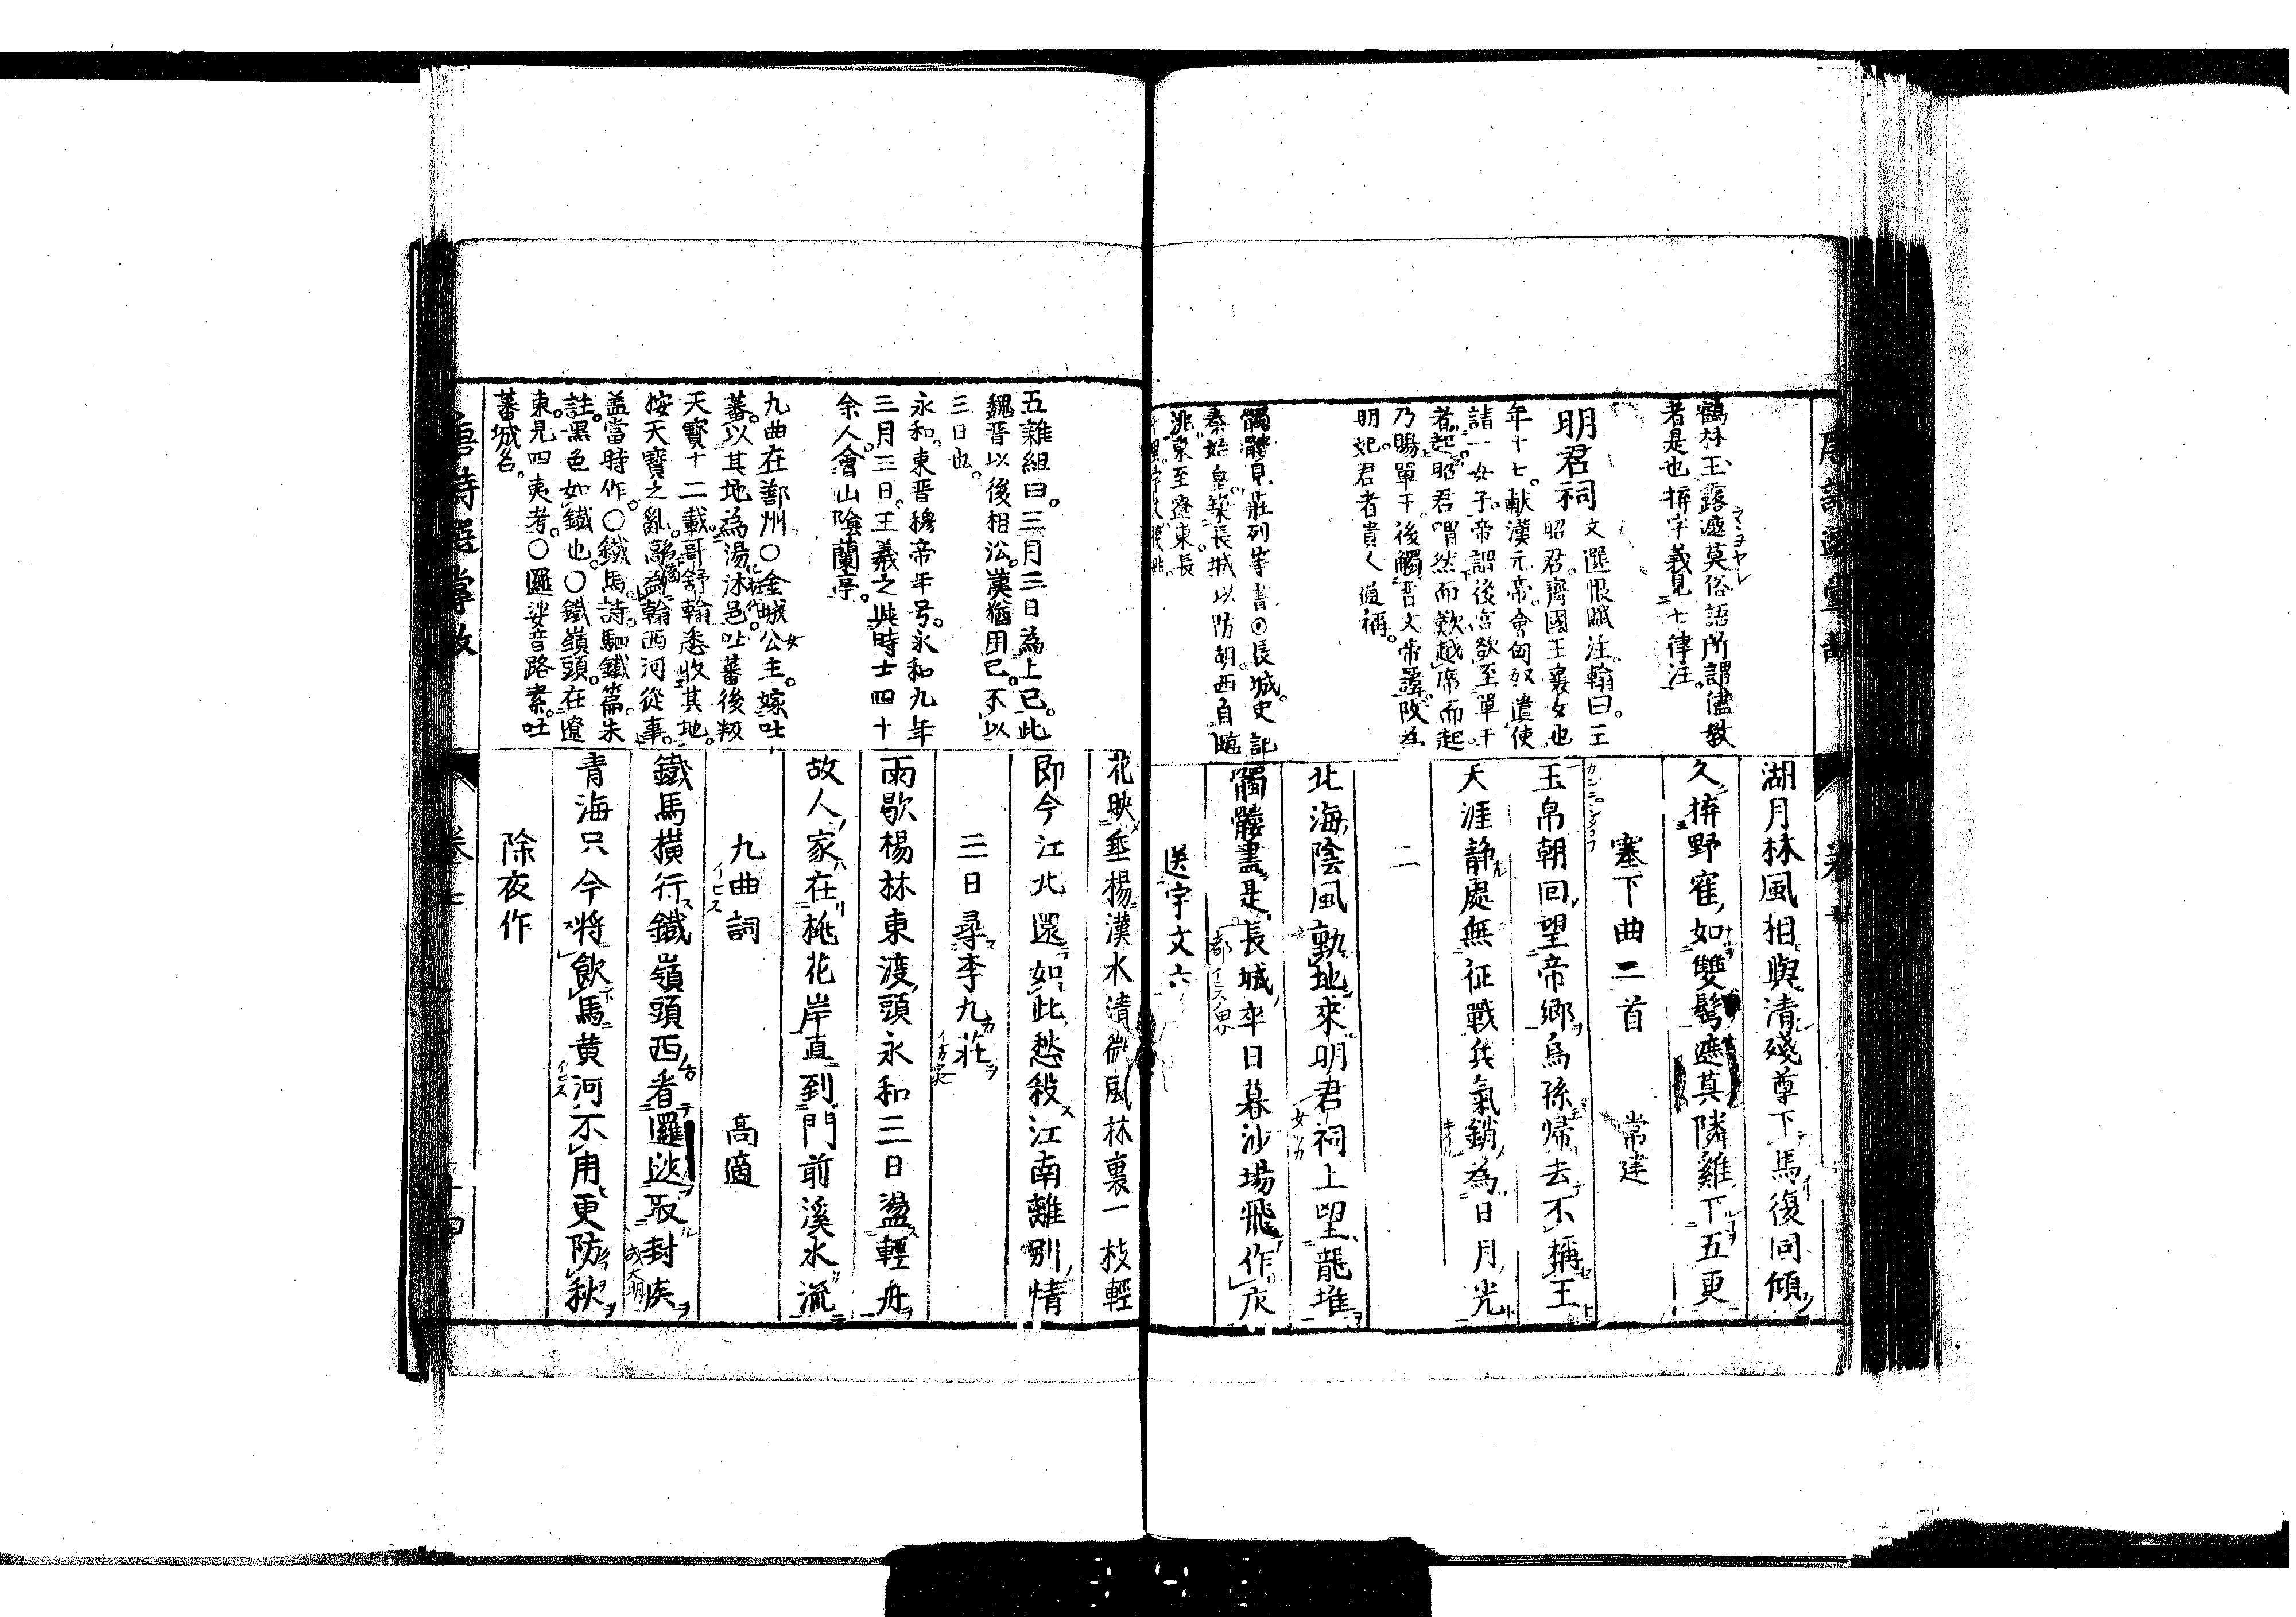 鶴林玉露遮莫俗語所謂儘教
者是也拚字義見七律注
明君祠
文選恨賦注翰曰王
昭君齊國王襄女也
年十七献漢元帝會匈奴遣使
請一女子帝謂後宮欲至單于
者起昭君喟然而歎越席而起
乃賜單于後觸晋文帝諱改為
明妃君者貴人通稱
髑髏見莊列等書○長城史記
秦始皇築長城以防胡西自臨
洮東至遼東長
湖月林風相與清殘尊下馬復同傾
久拚野寉如雙鬢遮莫隣雞下五更
塞下曲二首 常建
玉帛朝回望帝鄉烏孫歸去不稱王
天涯静處無征戰兵氣銷為日月光
二
北海陰風動地來明君祠上望龍堆
髑髏盡是長城卒日暮沙場飛作灰
送宇文六
五雜組曰三月三日為上巳此
魏晋以後相㳂漢猶用巳不以
三日也
永和東晋穆帝年号永和九年
三月三日王羲之與時士四十
余人會山陰蘭亭
九曲在鄯州○金城公主嫁吐
蕃以其地為湯沐邑吐蕃後叛
天寳十二載哥舒翰悉收其地
按天寶之亂高適為翰西河從事
盖當時作○鐵馬詩駟鐵篇朱
註黒色如鐵也○鐵嶺頭在遼
東見四夷考○邏娑音路素吐
蕃城名
花映垂楊漢水清微風林裏一枝輕
即今江北還如此愁殺江南離別情
三日尋李九莊
雨歇楊林東渡頭永和三日盪輕舟
故人家在桃花岸直到門前溪水流
九曲詞 高適
鐵馬横行鐵嶺頭西看邏逤取封侯
青海只今將飲馬黄河不用更防秋
除夜作
唐詩選掌故
卷七